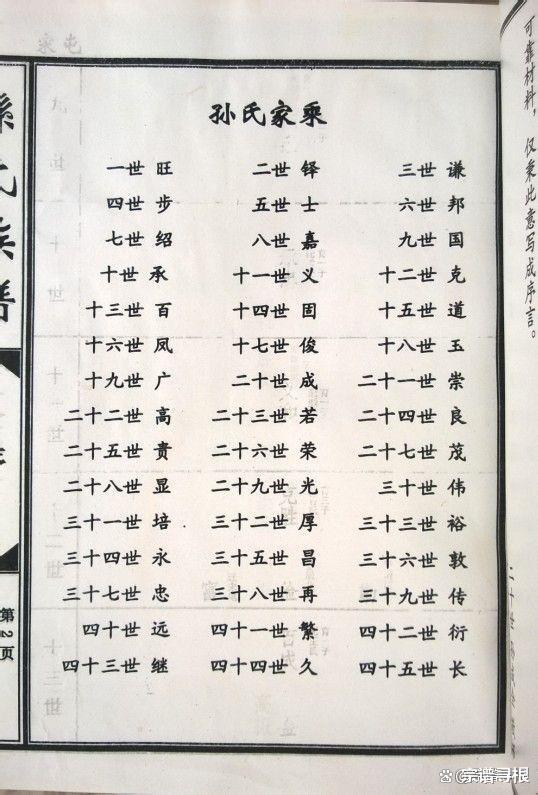 孙氏家乘
一世 旺 二世 铎 三世 谦
四世 步 五世 士 六世 邦
七世 绍 八世 嘉 九世 国
十世 承 十一世 义 十二世 克
十三世 百 十四世 固 十五世 道
十六世 凤 十七世 俊 十八世 玉
十九世 广 二十世 成 二十一世 崇
二十二世 高 二十三世 若 二十四世 良
二十五世 贵 二十六世 荣 二十七世 茂
二十八世 显 二十九世 光 三十世 伟
三十一世 培 三十二世 厚 三十三世 裕
三十四世 永 三十五世 昌 三十六世 敦
三十七世 忠 三十八世 再 三十九世 传
四十世 远 四十一世 繁 四十二世 衍
四十三世 继 四十四世 久 四十五世 长
可靠材料，仅秉此意写成序言。
孙氏族谱
第2页
宗谱寻根